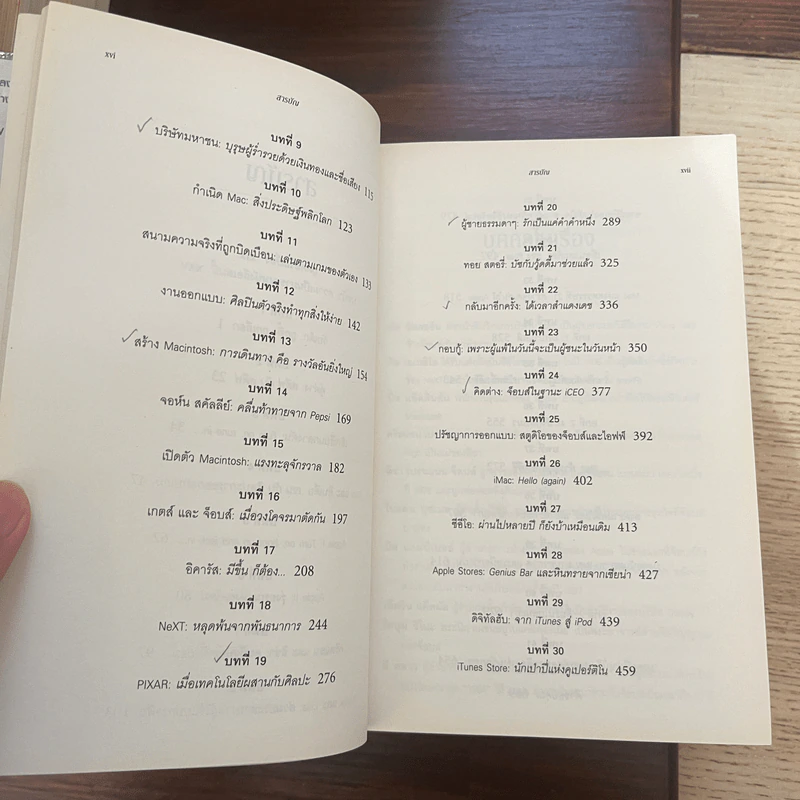 xvi
สารบัญ
บทที่ 9
บริษัทมหาชน: บุรุษผู้ร่ำรวยด้วยเงินทองและชื่อเสียง 115
บทที่ 10
กำเนิด Mac: สิ่งประดิษฐ์พลิกโลก 123
บทที่ 11
สนามความจริงที่ถูกบิดเบือน: เล่นตามเกมของตัวเอง 133
บทที่ 12
งานออกแบบ: ศิลปินตัวจริงทำทุกสิ่งให้ง่าย 142
บทที่ 13
สร้าง Macintosh: การเดินทาง คือ รางวัลอันยิ่งใหญ่ 154
บทที่ 14
จอห์น สคัลลีย์: คลื่นท้าทายจาก Pepsi 169
บทที่ 15
เปิดตัว Macintosh: แรงทะลุจักรวาล 182
บทที่ 16
เกตส์ และ จ็อบส์: เมื่อวงโคจรมาตัดกัน 197
บทที่ 17
อิคารัส: มีขึ้น ก็ต้อง... 208
บทที่ 18
NeXT: หลุดพ้นจากพันธนาการ 244
บทที่ 19
PIXAR: เมื่อเทคโนโลยีผสานกับศิลปะ 276
สารบัญ
xvii
บทที่ 20
ผู้ชายธรรมดาๆ: รักเป็นแค่คำคำหนึ่ง 289
บทที่ 21
ทอย สตอรี่: บัซกับวู้ดดี้มาช่วยแล้ว 325
บทที่ 22
กลับมาอีกครั้ง: ได้เวลาสำแดงเดช 336
บทที่ 23
กอบกู้: เพราะผู้แพ้ในวันนี้จะเป็นผู้ชนะในวันหน้า 350
บทที่ 24
คิดต่าง: จ็อบส์ในฐานะ iCEO 377
บทที่ 25
ปรัชญาการออกแบบ: สตูดิโอของจ็อบส์และไอฟฟ์ 392
บทที่ 26
iMac: Hello (again) 402
บทที่ 27
ซีอีโอ: ผ่านไปหลายปี ก็ยังบ้าเหมือนเดิม 413
บทที่ 28
Apple Stores: Genius Bar และหินทรายจากเซียน่า 427
บทที่ 29
ดิจิทัลฮับ: จาก iTunes สู่ iPod 439
บทที่ 30
iTunes Store: นักเป่าปี่แห่งคูเปอร์ติโน 459